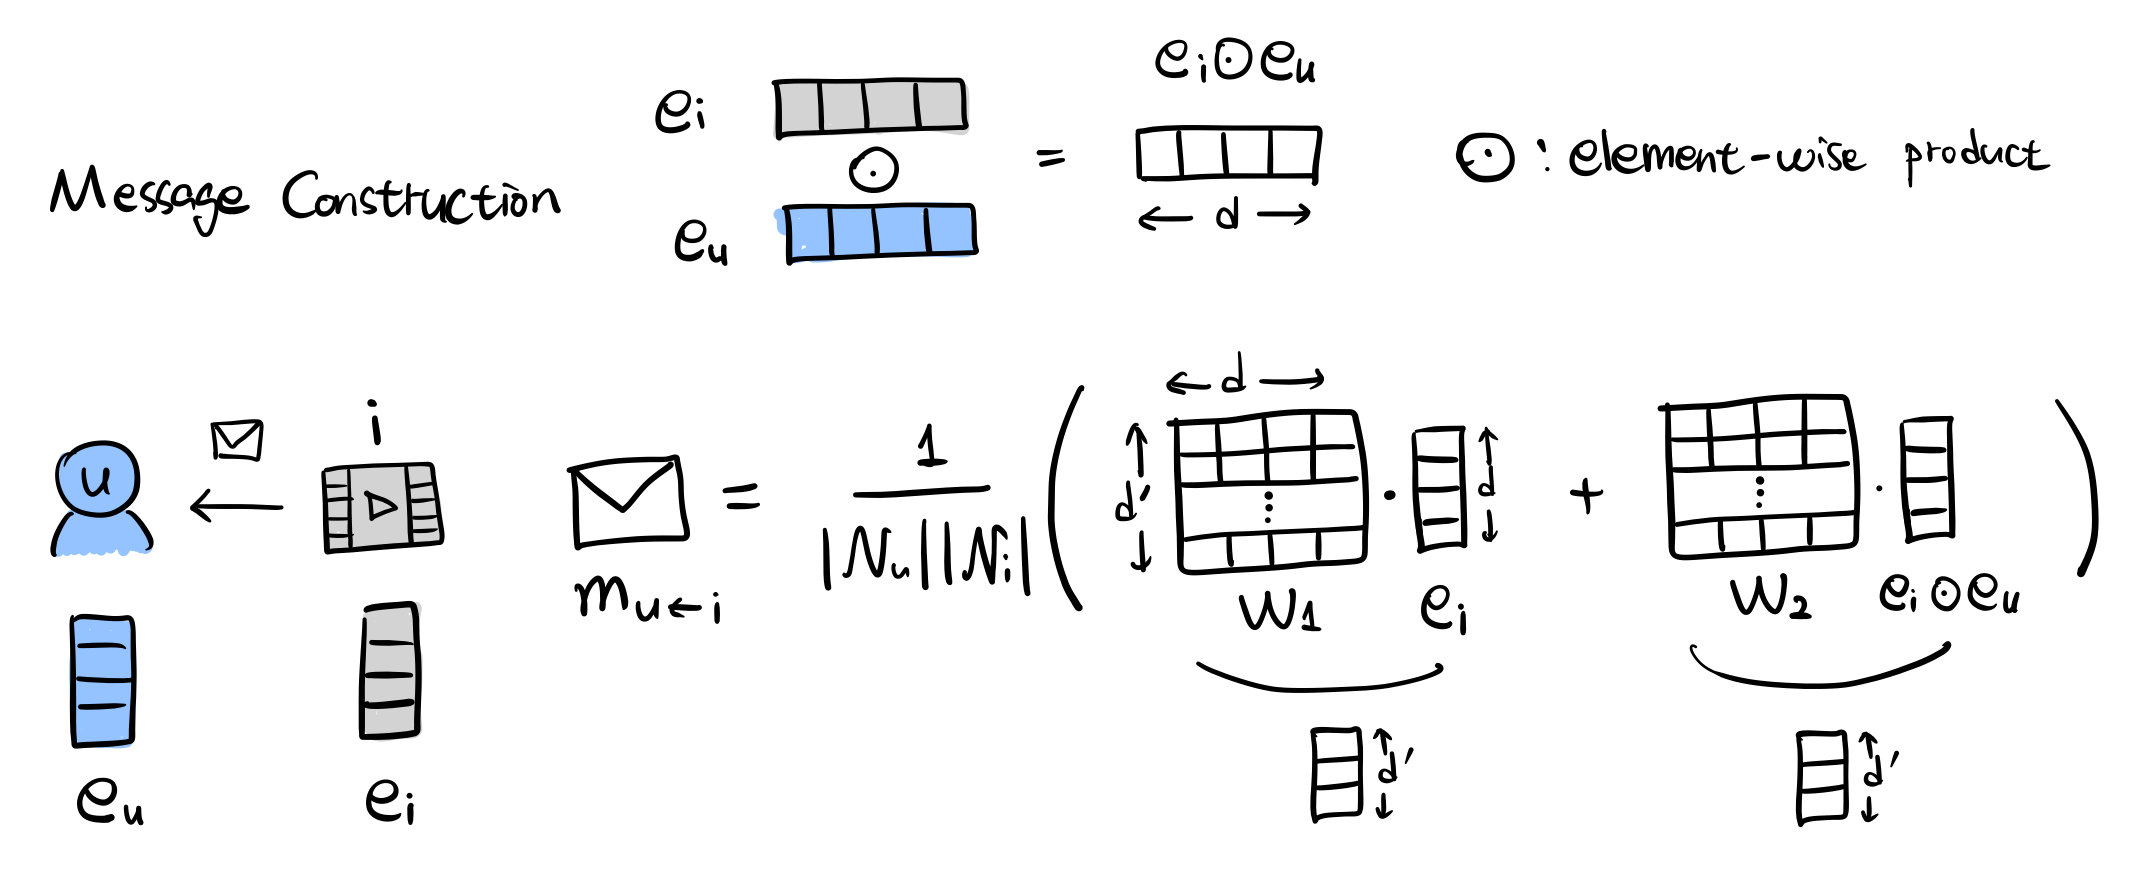 Message Construction
ei
⊙
eu
=
ei⊙eu
d
⊙ : element-wise product
u
i
eu
ei
mu←i
=
1
|Nu||Ni|
(
d
d'
W1
·
ei
d
+
W2
·
ei⊙eu
)
d'
d'